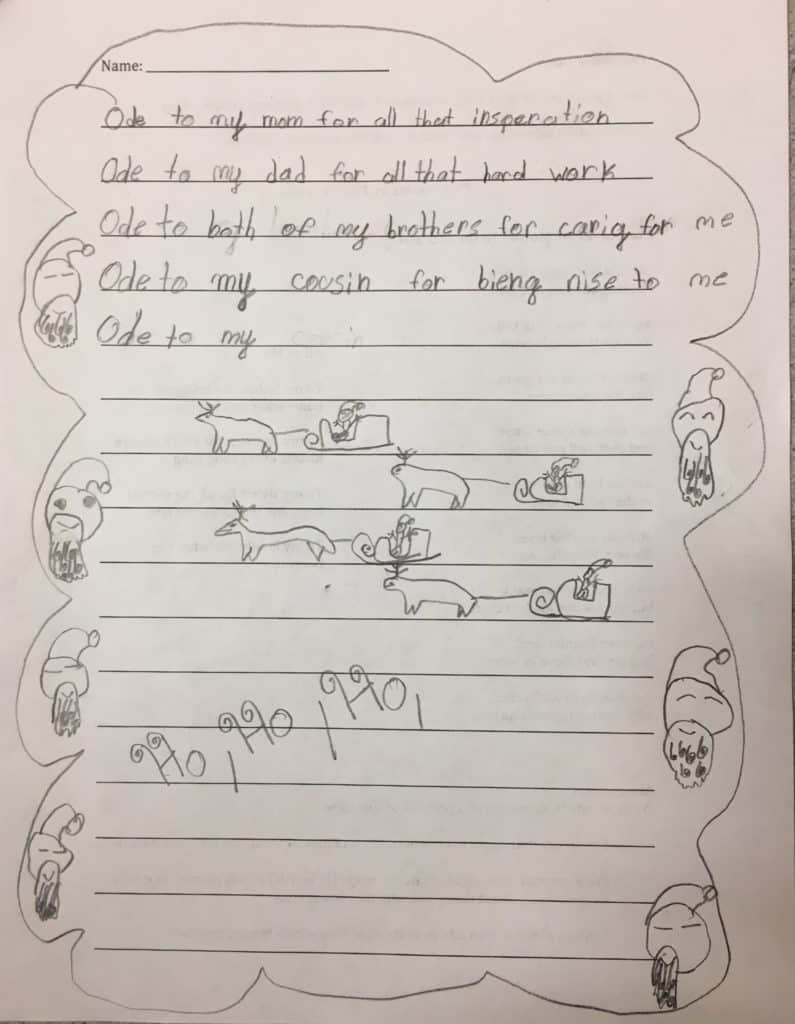 Name:
Ode to my mom for all that insperation
Ode to my dad for all that hard work
Ode to both of my brothers for carig for me
Ode to my cousin for bieng nise to me
Ode to my
Ho, Ho, Ho,